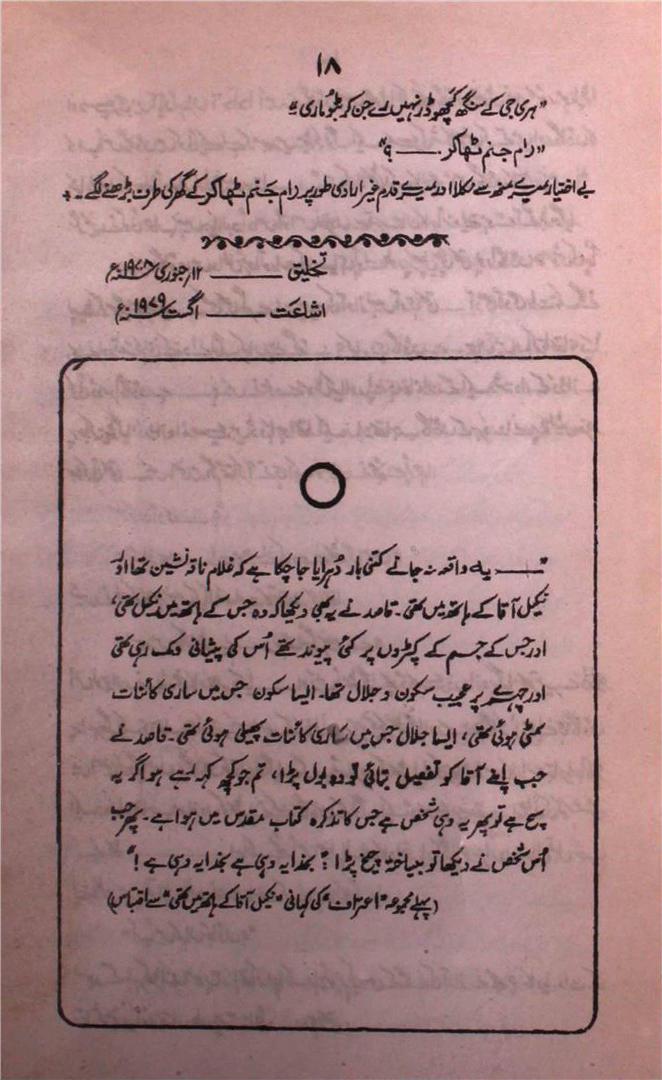 ۱۸
"ہری جی کے سنگھ کچھو ڈر نہیں اے جن کر بٹو ماری۔"
"رام جنم ٹھاکر۔ ——— ؟"
بے اختیار میرے منھ سے نکلا اور میرے قدم غیر ارادی طور پر رام جنم ٹھاکر کے گھر کی طرف بڑھنے لگے۔۔
تخلیق ——— ۱۲؍ جنوری ۱۹۷۸ء
اشاعت ——— اگست ۱۹۷۹ء
"——— یہ واقعہ نہ جانے کتنی بار دُہرایا جا چکا ہے کہ غلام ناقہ نشین تھا اور
نکیل آقا کے ہاتھ میں تھی۔ قاصد نے یہ بھی دیکھا کہ وہ جس کے ہاتھ میں نکیل تھی،
اور جس کے جسم کے کپڑوں پر کئی پیوند تھے اُس کی پیشانی دمک رہی تھی
اور چہرے پر عجیب سکون و جلال تھا۔ ایسا سکون جس میں ساری کائنات
سمٹی ہوئی تھی، ایسا جلال جس میں ساری کائنات پھیلی ہوئی تھی۔ قاصد نے
جب اپنے آقا کو تفصیل بتائی تو وہ بول پڑا، تم جو کچھ کہہ رہے ہو اگر یہ
سچ ہے تو پھر یہ وہی شخص ہے جس کا تذکرہ کتاب مقدس میں ہوا ہے۔ پھر جب
اُس شخص نے دیکھا تو بیساختہ چیخ پڑا: بخدا یہ وہی ہے بخدا یہ وہی ہے!"
(پہلے مجموعہ "اعتراف" کی کہانی "نکیل آقا کے ہاتھ میں تھی" سے اقتباس)